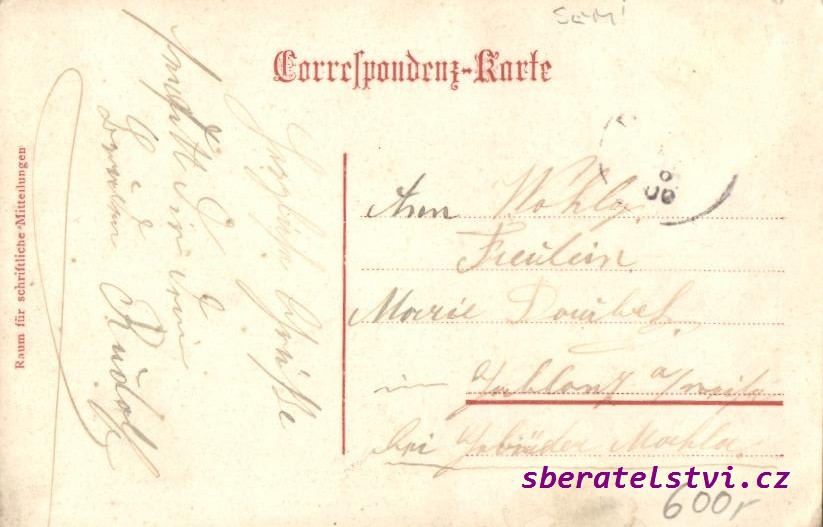 Semi
Correspondenz-Karte
Raum für schriftliche Mitteilungen
Herzliche Grüsse
Bruder
Rudolf
Wohlg.
Freulein
Marie Doubek
in Gablonz a/Neiße
bei Gebrüder Mahla
08
600,-
sberatelstvi.cz